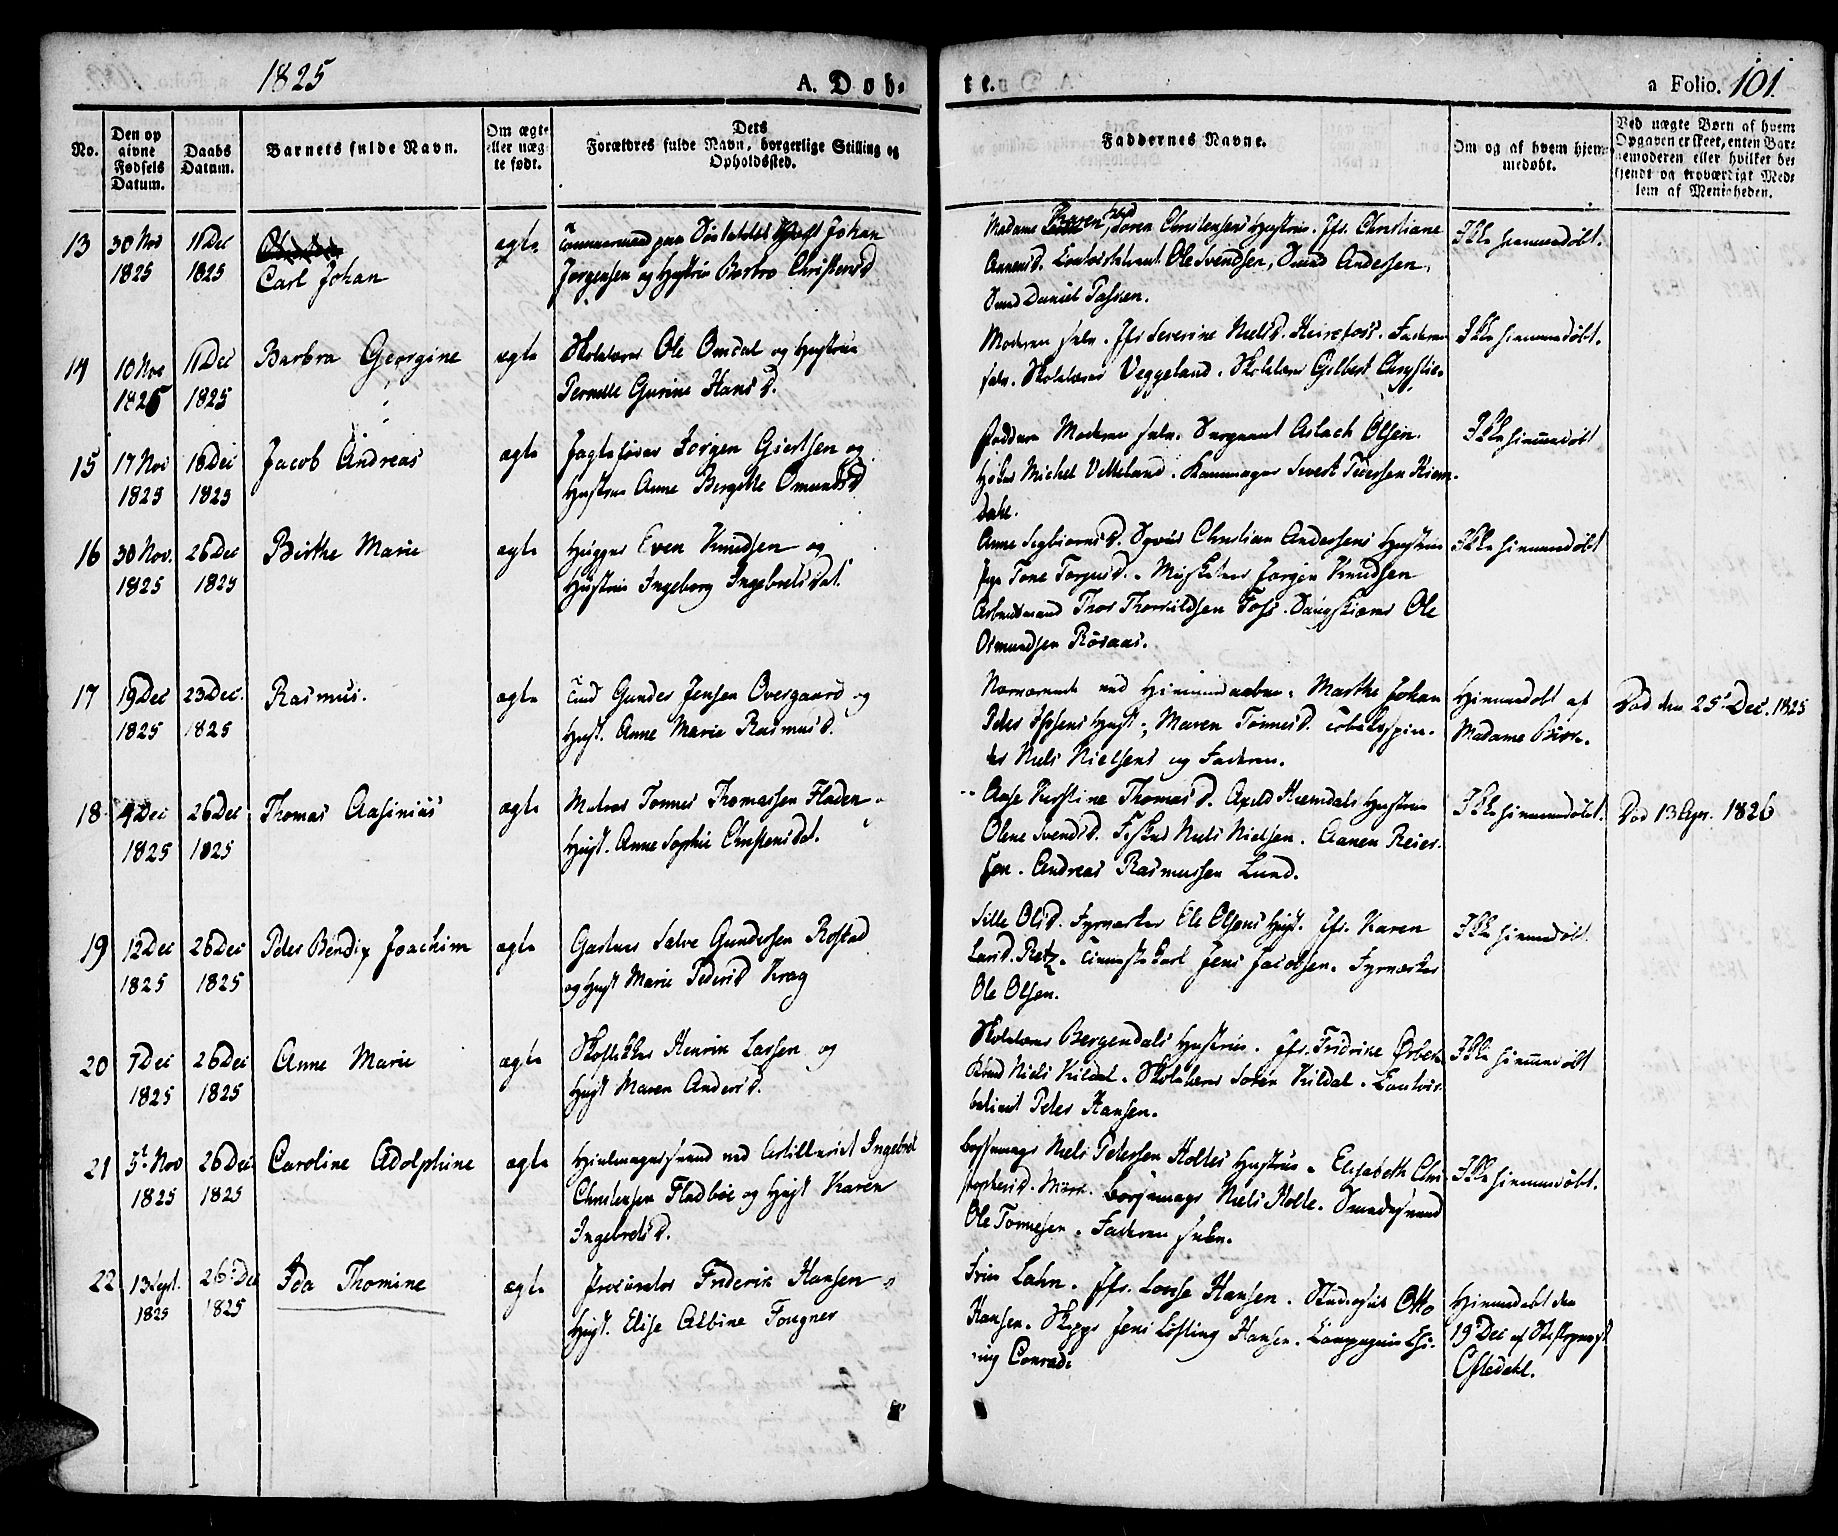 1825
A. Døb-
te.
a Folio. 101.
No.
Den op
givne
Fødsels
Datum.
Daabs
Datum.
Barnets fulde Navn.
Om ægte
eller uæg-
te født.
Dets
Forældres fulde Navn, borgerlige Stilling og
Opholdssted.
Faddernes Navne.
Om og af hvem hjem-
medøbt.
Ved uægte Børn af hvem
Opgaven er skeet, enten Bar-
nemoderen eller hvilket be-
kjendt og troværdigt Med-
lem af Menigheden.
13
30 Nov
1825
11 Dec
1825
Carl Johan
ægte
Tømmermand paa Johan
Jørgensen og Hustrue Barbro Christensd
Madame Søren Christensens Hustrue. Jfr. Christiane
Annensd. Ole Svendsen, Smed Andersen,
Smed Daniel Tassen.
Ikke hiemmedøbt.
14
10 Nov
1825
11 Dec
1825
Barbra Georgine
ægte
Skolelærer Ole Omdal og Hustrue
Pernille Gurine Hansd.
Moderen selv. Jfr Severine Nielsd. Heirefoss. Faderen
selv. Skolelærer Veggeland. Skolelærer Gilbert Chrystie.
Ikke hiemmedøbt.
15
17 Nov
1825
18 Dec
1825
Jacob Andreas
ægte
Jagtefører Jørgen Giertsen og
Hustrue Anne Bergitte Omundsd
Faddere Moderen selv. Sergeant Aslach Olsen.
Høker Michel Vetteland. Kammager Sivert Pedersen Kiem-
dahl.
Ikke hiemmedøbt
16
30 Nov.
1825
26 Dec
1825
Birthe Marie
ægte
Hugger Even Knudsen og
Hustrue Ingeborg Ingebretsdat.
Anne Segbiornsd. Christian Andersens Hustrue
Pige Tone Torgusd. Musketeer Jørgen Knudsen
Arbeidsmand Thor Thorvildsen Foss. Ole
Osmundsen Røsaas.
Ikke hiemmedøbt
17
19 Dec
1825
23 Dec.
1825
Rasmus.
ægte
Gunder Jensen Overgaard og
Hust. Anne Marie Rasmusd.
Nærværende ved Hiemmedaaben. Marthe Johan
Peter Ipsens Hust., Maren Tønnesd. Tobakspin-
der Niels Nielsens og Faderen.
Hiemmedøbt af
Madame Birk.
Død den 25 Dec. 1825
18
4 Dec
1825
26 Dec
1825
Thomas Aasinius
ægte
Matros Tønnes Thomassen Fladen
Hust. Anne Sophie Christensdat.
Aase Kirstine Thomasd. Axeld Hiemdals Hustrue
Olene Svendsd. Fisker Niels Nielsen. Aanen Reier-
sen. Andreas Rasmussen Lund.
Ikke hiemmedøbt.
Død 13 Apr. 1826
19
12 Dec
1825
26 Dec
1825
Peter Bendix Joachim
ægte
Gartner Salve Gundersen Rostad
og Hust Marie Pedersd Krag
Sille Olsd. Fyrverker Ole Olsens Hust. Jfr. Karen
Larsd. Retz. Tienestekarl Jens Jacobsen. Fyrverker
Ole Olsen.
Ikke hiemmedøbt.
20
7 Dec
1825
26 Dec
1825
Anne Marie
ægte
Skoflikker Henrik Larsen og
Hust Maren Andersd.
Skolelærer Bergendals Hustrue. Jfr. Fridrine Ørbek
Niels Kildal. Skolelærer Søren Kildal. Contoir-
betient Peter Hansen.
Ikke hiemmedøbt
21
5t Nov
1825
26 Dec
1825
Caroline Adolphine
ægte
Hiulmagersvend ved Artilleriet Ingebret
Christensen Fladbøe og Hust Karen
Ingebretsd.
Børsemager Niels Petersen Holtes Hustrue. Elisabeth Chri-
stophersd. Børsemager Niels Holte. Smedesvend
Ole Tønnesen. Faderen selv.
Ikke hiemmedøbt.
22
13 Sept.
1825
26 Dec
1825
Ida Thomine
ægte
Procurator Friderik Hansen
Hust. Elise Albine Fougner
Frue Lahn. Jfr. Lovise Hansen. Studiosus Otto
Hansen. Skipper Jens Løfting Hansen. Compagnie Chi-
rurg Conradi
Hiemmedøbt den
19 Dec af Stiftsprovst
Oftedahl.